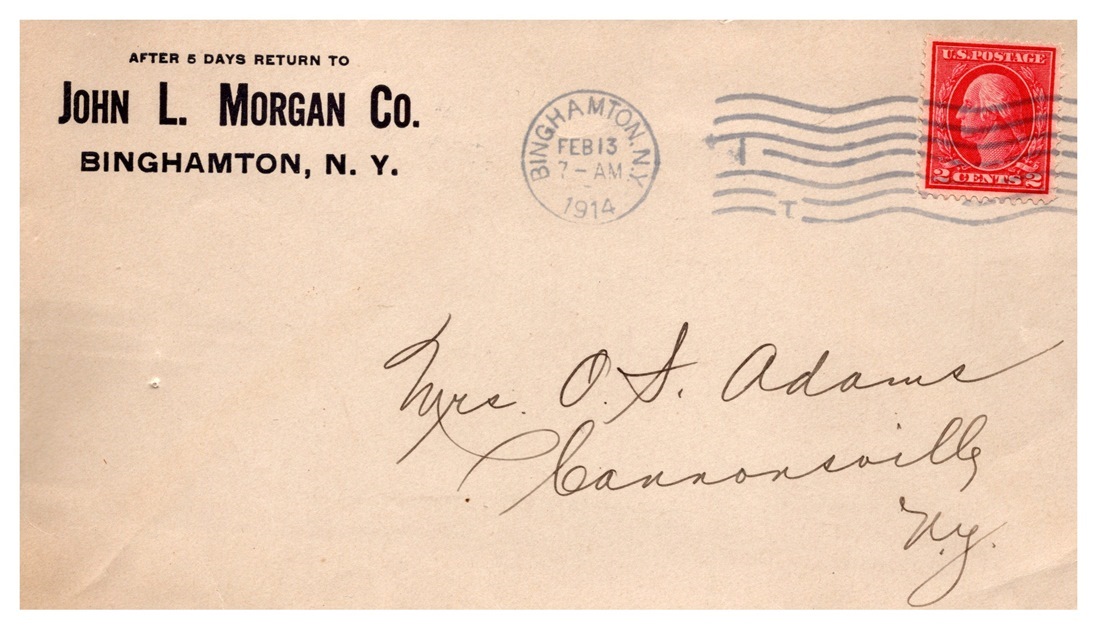 AFTER 5 DAYS RETURN TO
JOHN L. MORGAN CO.
BINGHAMTON, N. Y.
BINGHAMTON, N.Y.
FEB 13
7-AM
1914
T
T
U.S. POSTAGE
2 CENTS 2
Mrs. O. S. Adams
Cannonsville
N.y.